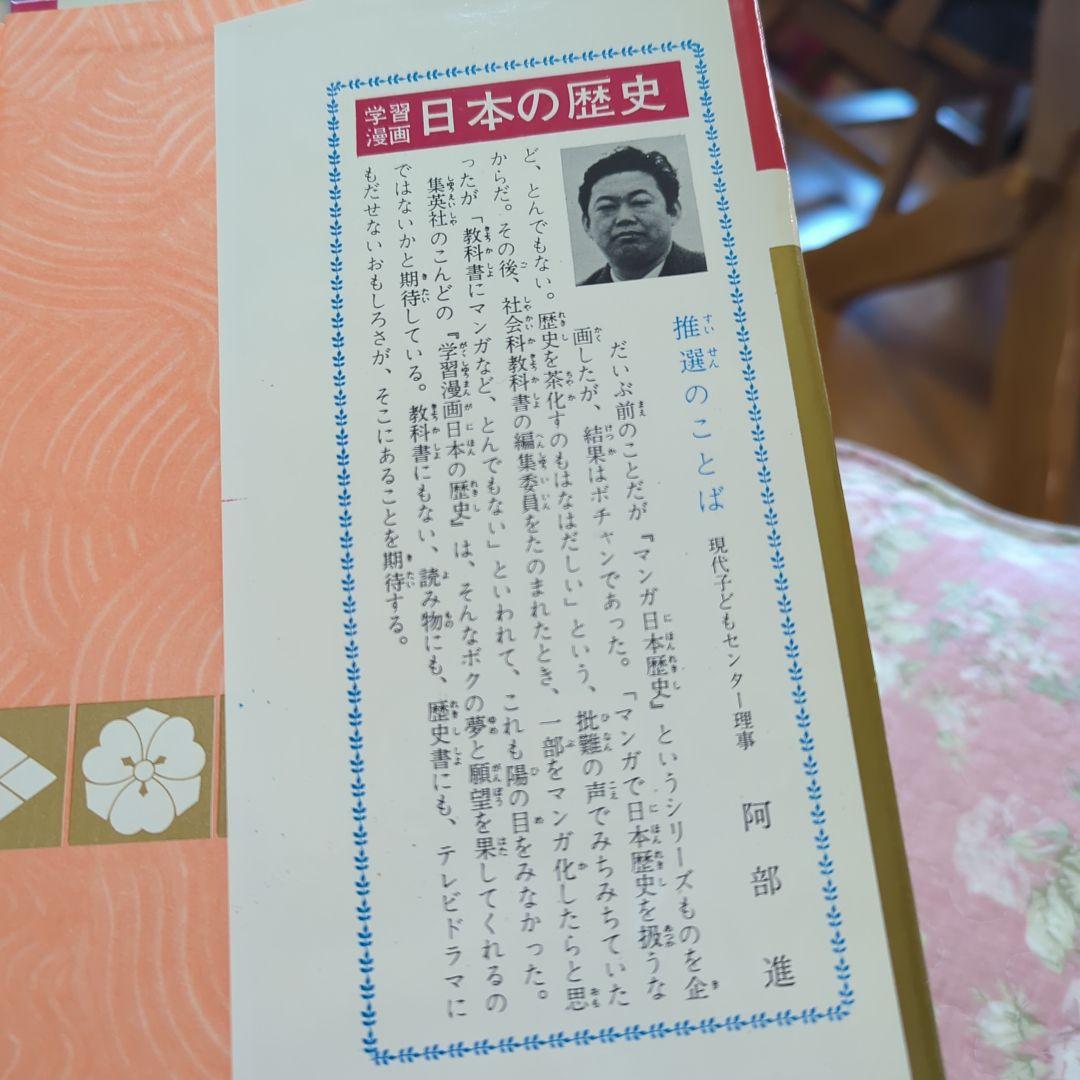 学習漫画 日本の歴史
推選のことば
現代子どもセンター理事
阿部 進
だいぶ前のことだが『マンガ日本歴史』というシリーズものを企
画したが、結果はボチャンであった。「マンガで日本歴史を扱うな
ど、とんでもない。歴史を茶化すのもはなはだしい」という、批難の声でみちみちていた
からだ。その後、社会科教科書の編集委員をたのまれたとき、一部をマンガ化したらと思
ったが「教科書にマンガなど、とんでもない」といわれて、これも陽の目をみなかった。
集英社のこんどの『学習漫画日本の歴史』は、そんなボクの夢と願望を果してくれるの
ではないかと期待している。教科書にもない、読み物にも、歴史書にも、テレビドラマに
もだせないおもしろさが、そこにあることを期待する。